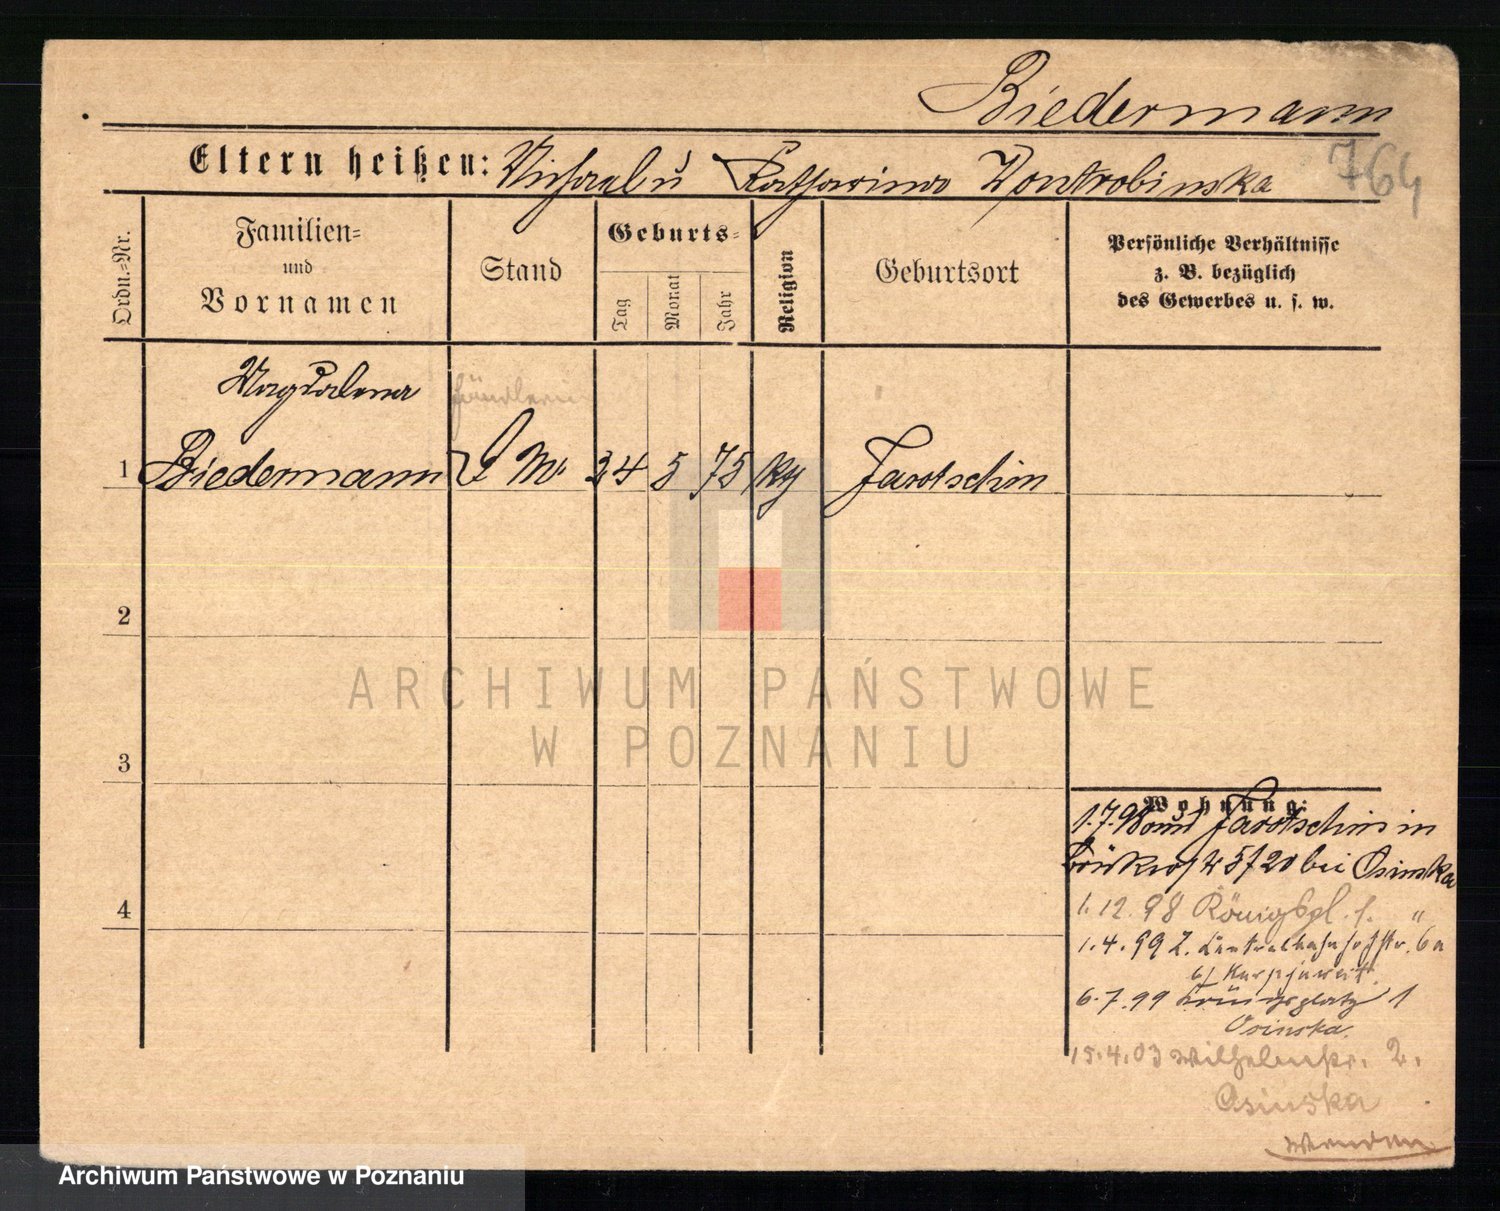 Biedermann
764
Eltern heißen: Michael u Katharina
Ordn.-Nr.
Familien-
und
Vornamen
Stand
Geburts-
Tag
Monat
Jahr
Religion
Geburtsort
Persönliche Verhältnisse
z. B. bezüglich
des Gewerbes u. s. w.
Magdalena
Händlerin
1 Biedermann 24 5 75 Jarotschin
2
3
4
ARCHIWUM PAŃSTWOWE
W POZNANIU
Wohnung:
1.7.98 Jarotschin in
5/20 bei Osinska
1.12.98 Königspl. 1. "
1.4.99 Z. Centralbahnhofstr. 6a
6.7.99 Königsplatz 1
Osinska
15.4.03 Wilhelmstr. 2.
Osinska
Wenden
Archiwum Państwowe w Poznaniu